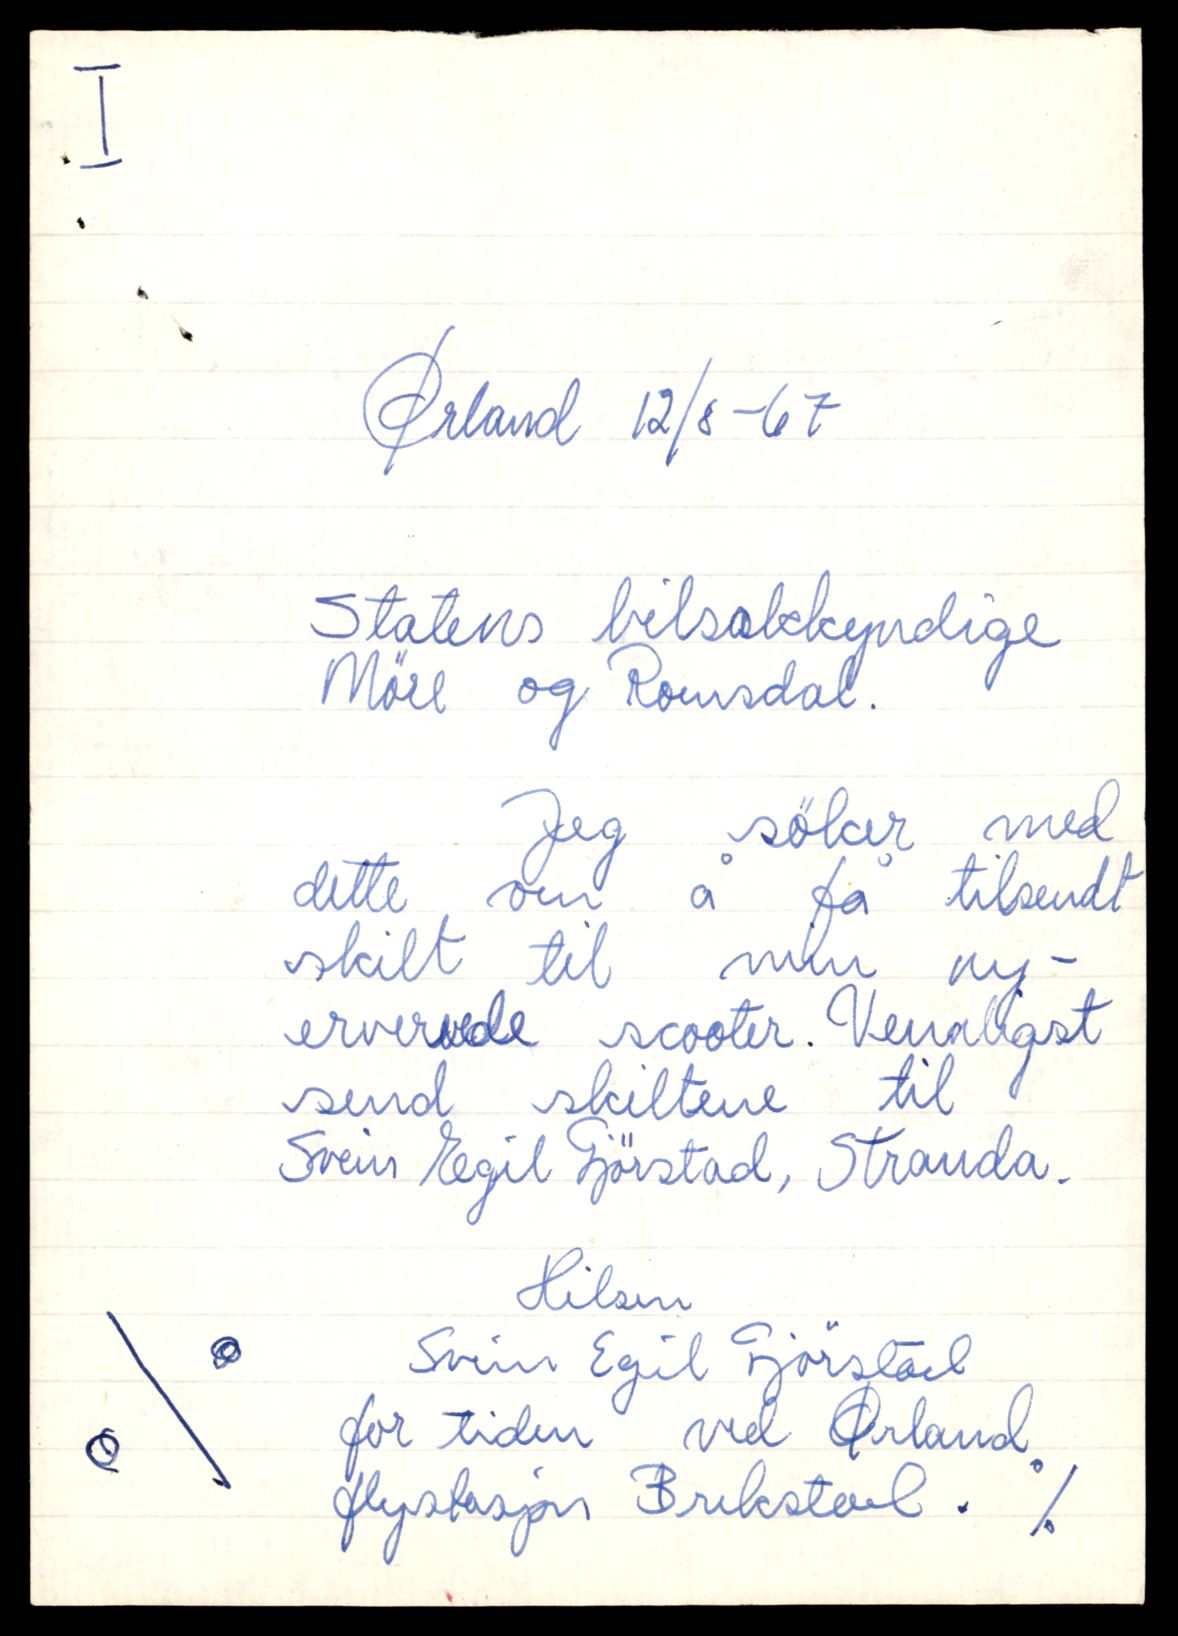 I
Ørland 12/8-67
Statens bilsakkyndige
Möre og Romsdal.
Jeg söker med
dette om å få tilsendt
skilt til min ny-
ervervede scooter. Vennligst
send skiltene til
Svein Egil Fjörstad, Stranda.
Hilsen
Svein Egil Fjörstad
for tiden ved Ørland
flystasjon Brekstad. ./.